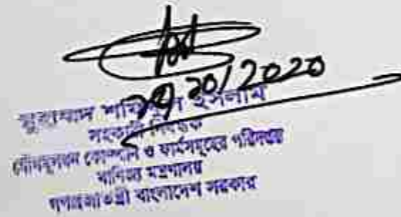 ২৭/১০/২০২০
মুহাম্মদ ইসলাম
সহকারী নিবন্ধক
যৌথমূলধন কোম্পানি ও ফার্মসমূহের পরিদপ্তর
বাণিজ্য মন্ত্রণালয়
গণপ্রজাতন্ত্রী বাংলাদেশ সরকার